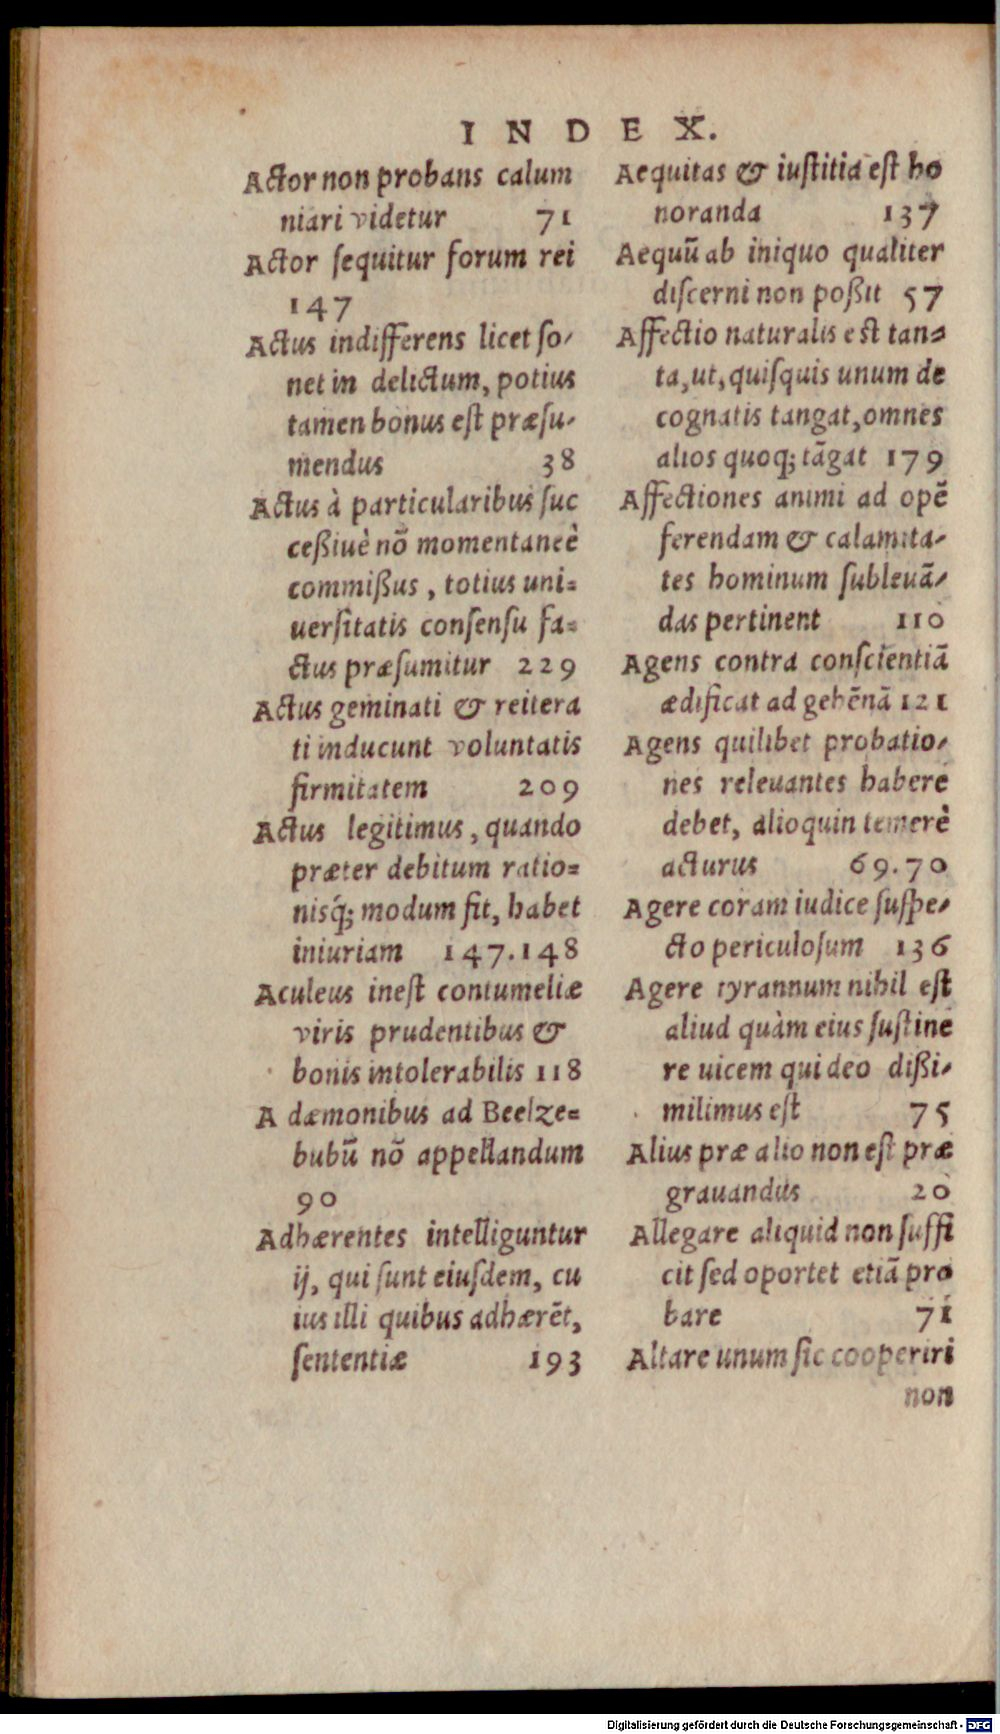 INDEX.
Actor non probans calum
niari videtur 71
Actor ſequitur forum rei
147
Actus indifferens licet ſo-
net in delictum, potius
tamen bonus eſt præſu-
mendus 38
Actus à particularibus ſuc
ceßiuè nõ momentaneè
commißus, totius uni-
uerſitatis conſenſu fa-
ctus præſumitur 229
Actus geminati & reitera
ti inducunt voluntatis
firmitatem 209
Actus legitimus, quando
præter debitum ratio-
nisq́; modum fit, habet
iniuriam 147.148
Aculeus ineſt contumeliæ
viris prudentibus &
bonis intolerabilis 118
A dæmonibus ad Beelze-
bubũ nõ appellandum
90
Adhærentes intelliguntur
ij, qui ſunt eiuſdem, cu
ius illi quibus adhærẽt,
ſententiæ 193
Aequitas & iuſtitia eſt ho
noranda 137
Aequũ ab iniquo qualiter
diſcerni non poßit 57
Affectio naturalis eſt tan-
ta, ut, quiſquis unum de
cognatis tangat, omnes
alios quoq; tãgat 179
Affectiones animi ad opẽ
ferendam & calamita-
tes hominum ſubleuã-
das pertinent 110
Agens contra conſcientiã
ædificat ad gehẽnã 121
Agens quilibet probatio-
nes releuantes habere
debet, alioquin temerè
acturus 69.70
Agere coram iudice ſuſpe-
cto periculoſum 136
Agere tyrannum nihil eſt
aliud quàm eius ſuſtine
re uicem qui deo dißi-
milimus eſt 75
Alius præ alio non eſt præ
grauandus 20
Allegare aliquid non ſuffi
cit ſed oportet etiã pro
bare 71
Altare unum ſic cooperiri
non
Digitalisierung gefördert durch die Deutsche Forschungsgemeinschaft - DFG